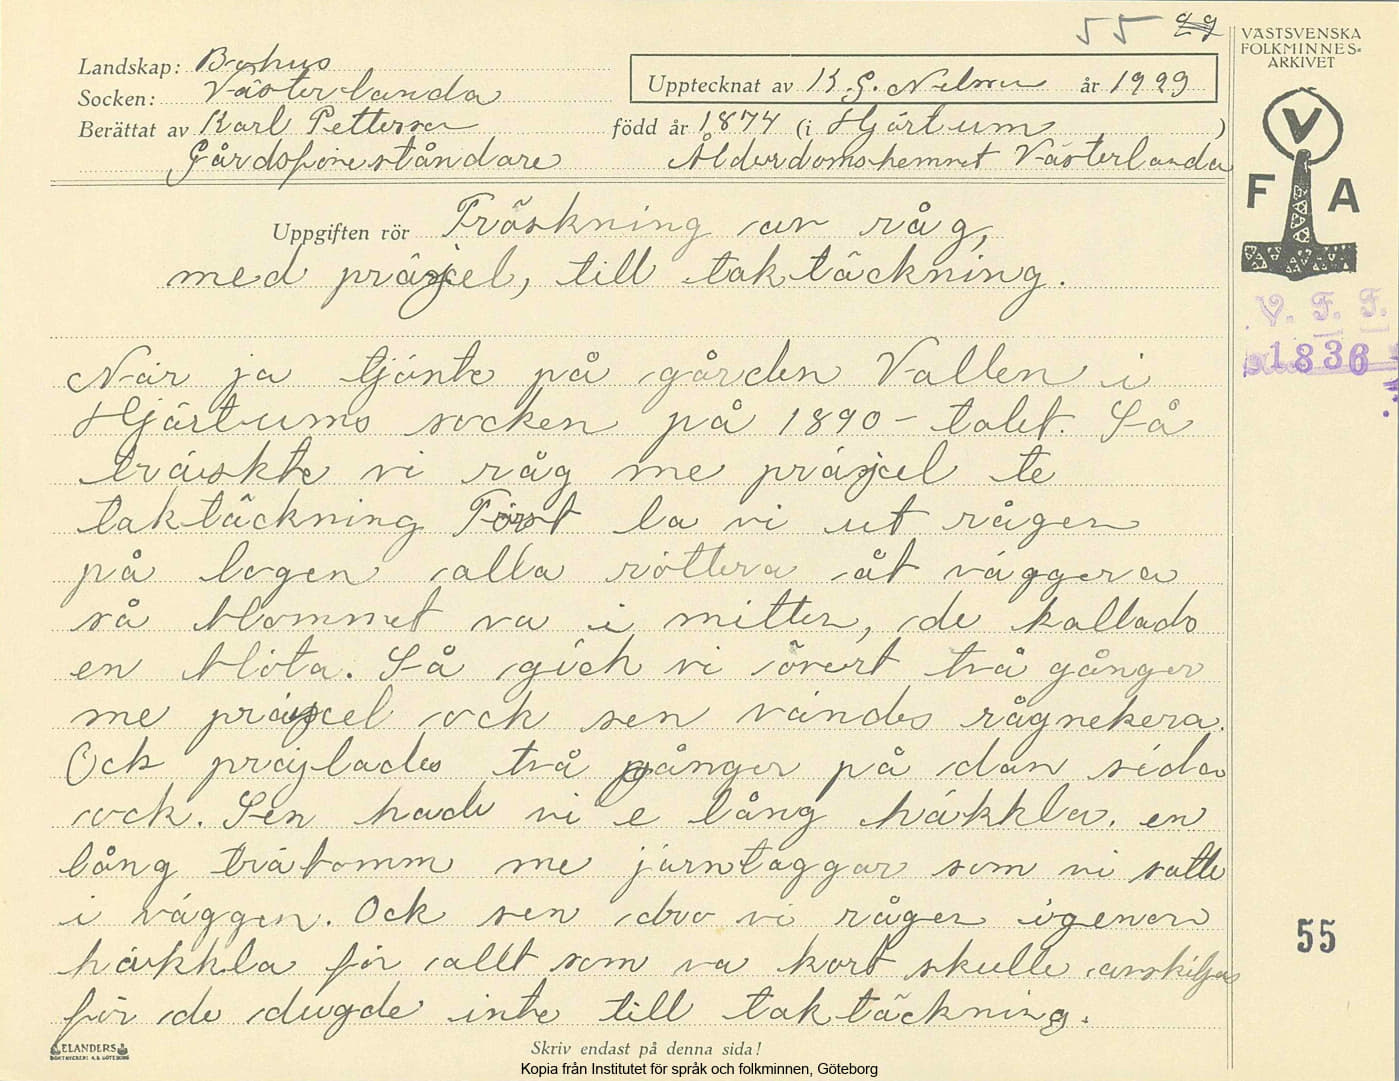 55 29
VÄSTSVENSKA
FOLKMINNES-
ARKIVET
Landskap: Bohus
Socken: Västerlanda
Upptecknat av K.G. Nilsson år 1929
Berättat av Karl Pettersson född år 1874 (i Hjärtum )
Gårdsföreståndare Ålderdomshemmet Västerlanda
V
F A
Uppgiften rör Tröskning av råg,
med präjel, till taktäckning.
V. F. F.
1836
När ja tjänte på gården Vallen i
Hjärtums socken på 1890-talet. Så
träskte vi råg me präjel te
taktäckning Först la vi ut rågen
på logen alla röttera åt väggera
så blommet va i mitten, de kallads
en blöta. Så gick vi överst två gånger
me präjel ock sen vändes rågnekera.
Ock präjlades två gånger på dan sida
ock. Sen hade vi e lång häkkla. en
lång träbomm me järntaggar som vi satte
i väggen. Ock sen dro vi rågen igenon
häkkla för allt som va kort skulle avskiljas
för de dugde inte till taktäckning.
55
ELANDERS
BOKTRYCKERI A.B. GÖTEBORG
Skriv endast på denna sida!
Kopia från Institutet för språk och folkminnen, Göteborg